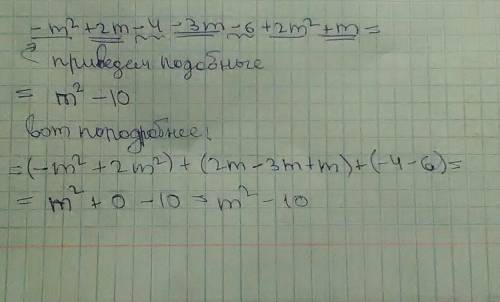 -m² + 2m - 4 - 3m - 6 + 2m² + m =
приведем подобные
= m² - 10
вот поподробнее:
= (-m² + 2m²) + (2m - 3m + m) + (-4 - 6) =
= m² + 0 - 10 = m² - 10